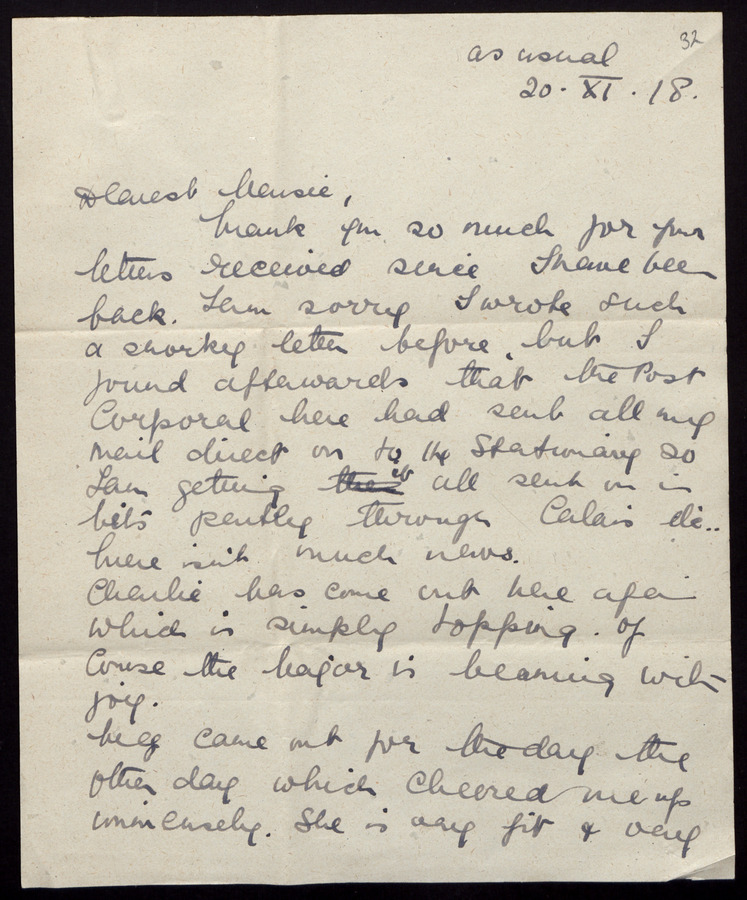 32
as usual
20. XI. 18.
Dearest Mousie,
Thank you so much for your
letters received since I have been
back. I am sorry I wrote such
a snorky letter before, but I
found afterwards that the Post
Corporal here had sent all my
mail direct on to the Stationary so
I am getting it all sent on in
bits partly through Calais etc..
There isn't much news.
Charlie has come out here again
which is simply topping. Of
Course the Major is beaming with
joy.
Meg came out for the day the
other day which cheered me up
immensely. She is very fit & very